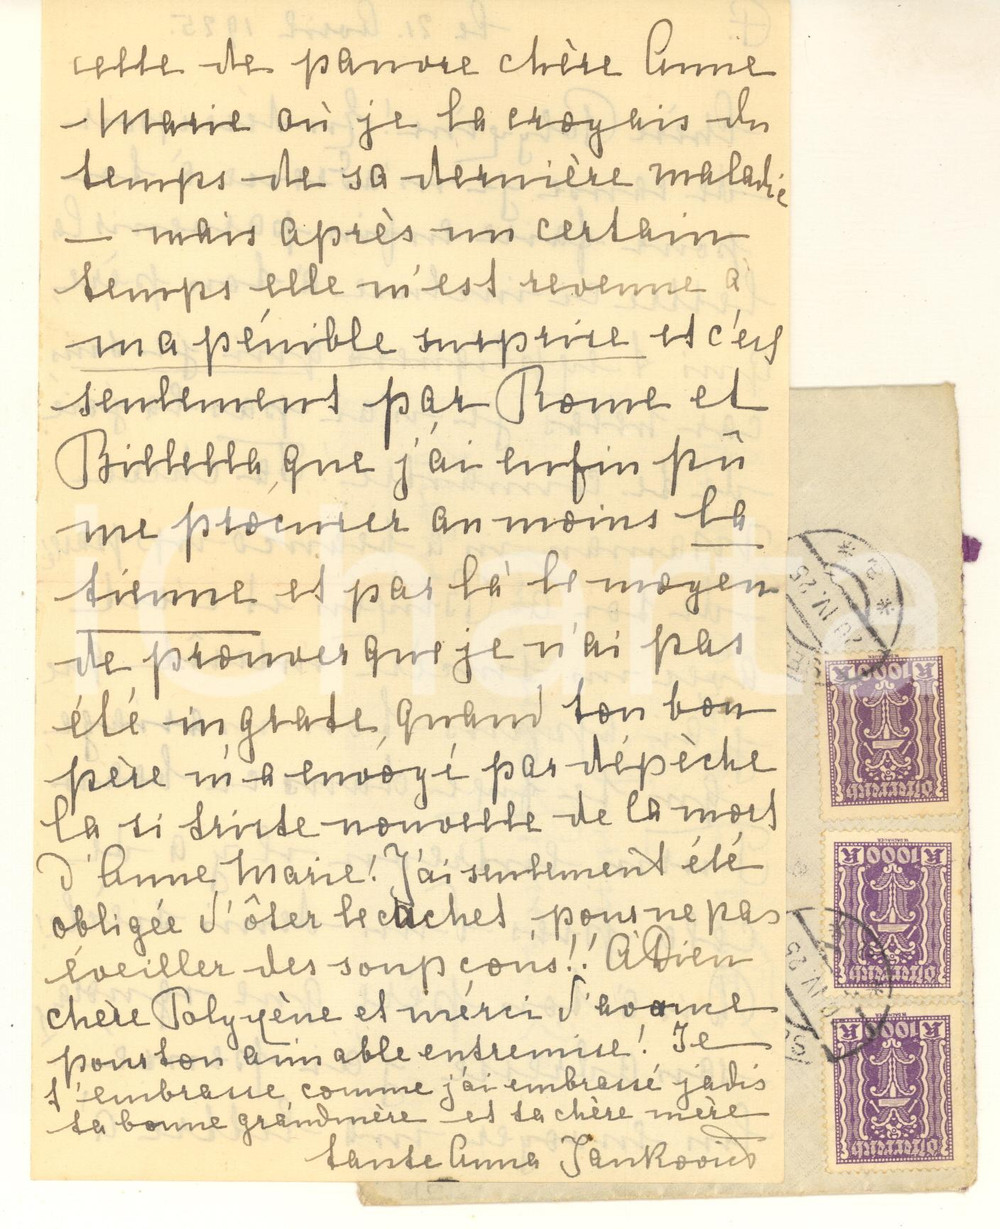 cette de pauvre chère Anne
Marie où je la croyais du
temps de sa dernière maladie
— mais après un certain
temps elle m'est revenue à
ma pénible surprise et c'est
seulement par Rome et
Billella, que j'ai enfin pû
me procurer au moins la
tienne et par là le moyen
de prouver que je n'ai pas
été ingrate, quand ton bon
père m'a envoyé par dépèche
la si triste nouvelle de la mort
d'Anne Marie! J'ai seulement été
obligée d'ôter le cachet, pour ne pas
éveiller des soupçons!! A Dieu
chère Polyxène et merci d'avance
pour ton aimable entremise! Je
t'embrasse comme j'ai embrassé jadis
ta bonne grandmère et ta chère mère
tante Anna Jankovics
iCharta
20 IV. 25
1000 K
Österreich
1000 K
Österreich
IV. 25
1000 K
Österreich